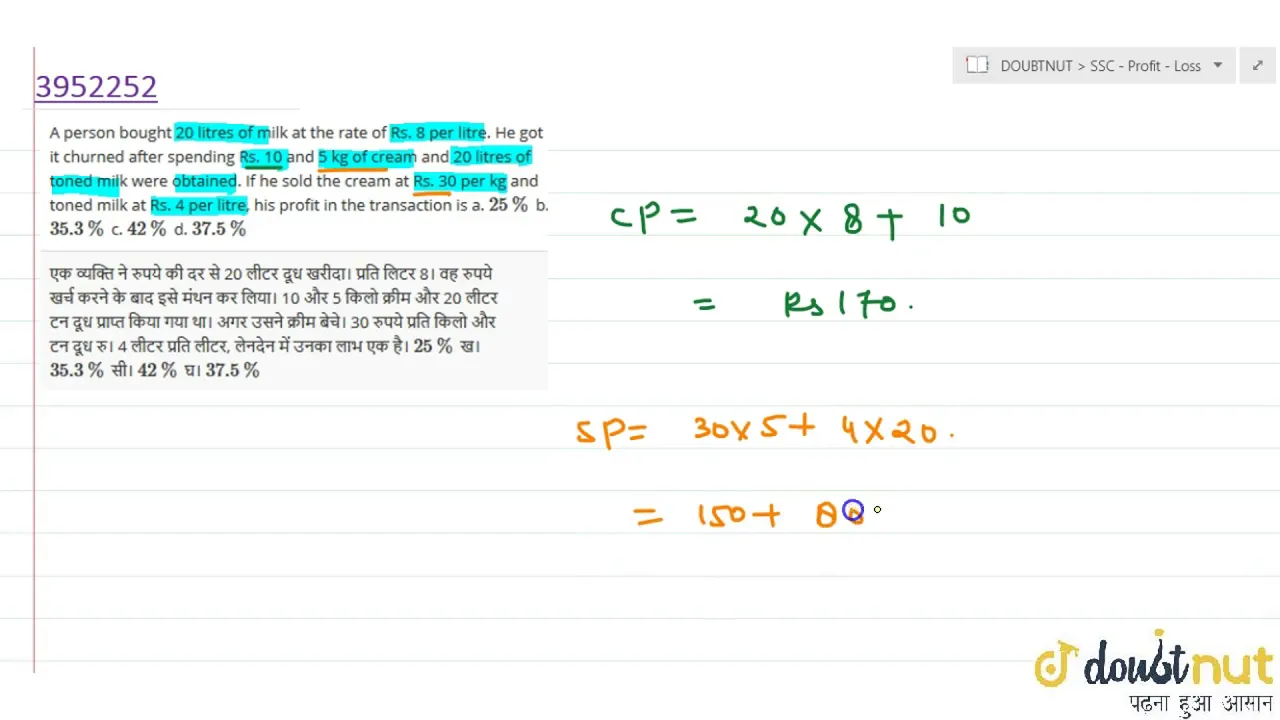 DOUBTNUT > SSC - Profit - Loss
3952252
A person bought 20 litres of milk at the rate of Rs. 8 per litre. He got
it churned after spending Rs. 10 and 5 kg of cream and 20 litres of
toned milk were obtained. If he sold the cream at Rs. 30 per kg and
toned milk at Rs. 4 per litre, his profit in the transaction is a. 25 % b.
35.3 % c. 42 % d. 37.5 %
एक व्यक्ति ने रुपये की दर से 20 लीटर दूध खरीदा। प्रति लिटर 8। वह रुपये
खर्च करने के बाद इसे मंथन कर लिया। 10 और 5 किलो क्रीम और 20 लीटर
टन दूध प्राप्त किया गया था। अगर उसने क्रीम बेचे। 30 रुपये प्रति किलो और
टन दूध रु। 4 लीटर प्रति लीटर, लेनदेन में उनका लाभ एक है। 25 % ख।
35.3 % सी। 42 % घ। 37.5 %
CP = 20 x 8 + 10
= Rs 170.
SP = 30 x 5 + 4 x 20.
= 150 + 80
doubtnut
पढ़ना हुआ आसान